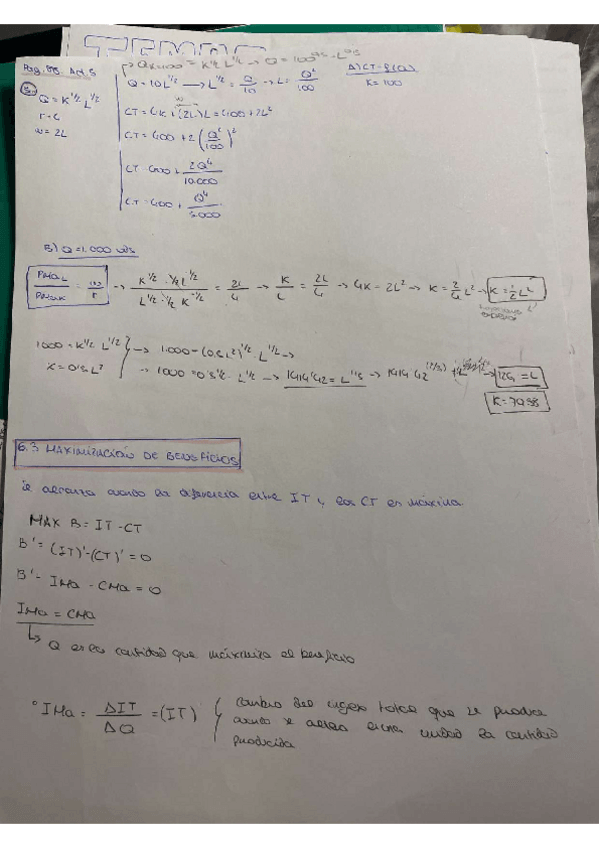 Pag. 98. Act. 5
Q K=100 = K^1/2 L^1/2 → Q = 100^0'5 · L^0'5
A) CT = f(Q)
K = 100
Q = K^1/2 L^1/2
r = 4
w = 2L
Q = 10L^1/2 → L^1/2 = Q/10 → L = Q²/100
CT = 4K + (2L)L = 400 + 2L²
CT = 400 + 2 (Q²/100)²
CT = 400 + 2Q⁴/10.000
CT = 400 + Q⁴/5.000
B) Q = 1.000 uds
PMaL/PMaK = w/r → K^1/2 · 1/2 L^-1/2 / L^1/2 · 1/2 K^-1/2 = 2L/4 → K/L = 2L/4 → 4K = 2L² → K = 2/4 L² → K = 1/2 L²
1000 = K^1/2 L^1/2
K = 0'5L²
→ 1.000 = (0,5L²)^1/2 · L^1/2 →
→ 1000 = 0'5^1/2 · L · L^1/2 → 1414'42 = L^1'5 → 1414'42^(2/3) → 126 = L
K = 7938
6.3 MAXIMIZACIÓN DE BENEFICIOS
Se alcanza cuando la diferencia entre IT y los CT es máxima.
MAX B = IT - CT
B' = (IT)' - (CT)' = 0
B' = IMa - CMa = 0
IMa = CMa
↳ Q es la cantidad que maximiza el beneficio
° IMa = ΔIT/ΔQ = (IT)
Cambio del ingreso total que se produce
cuando se altera en una unidad la cantidad
producida